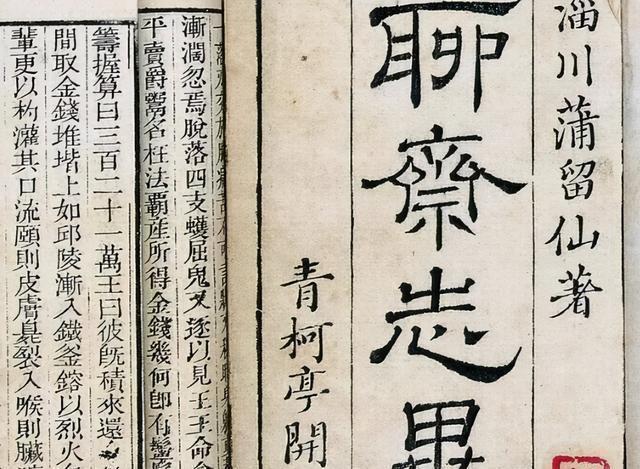 淄川蒲留仙著
聊齋志異
青柯亭開
漸濶忽焉脫落四支蠖屈鬼又逐以見王王命會
平賣爵鬻名枉法霸産所得金錢幾何即有鬡
籌握算曰三百二十一萬王曰彼既積來還
間取金錢堆堦上如邱陵漸入鐵釜鎔以烈火
輩更以杓灌其口流頤則皮膚臭裂入喉則臟